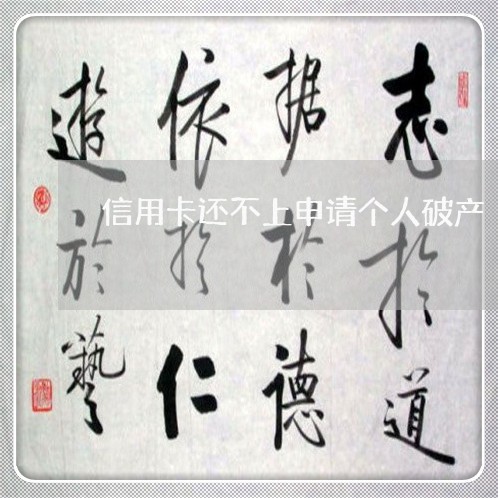 志於道
据於德
依於仁
遊於藝
信用卡还不上申请个人破产